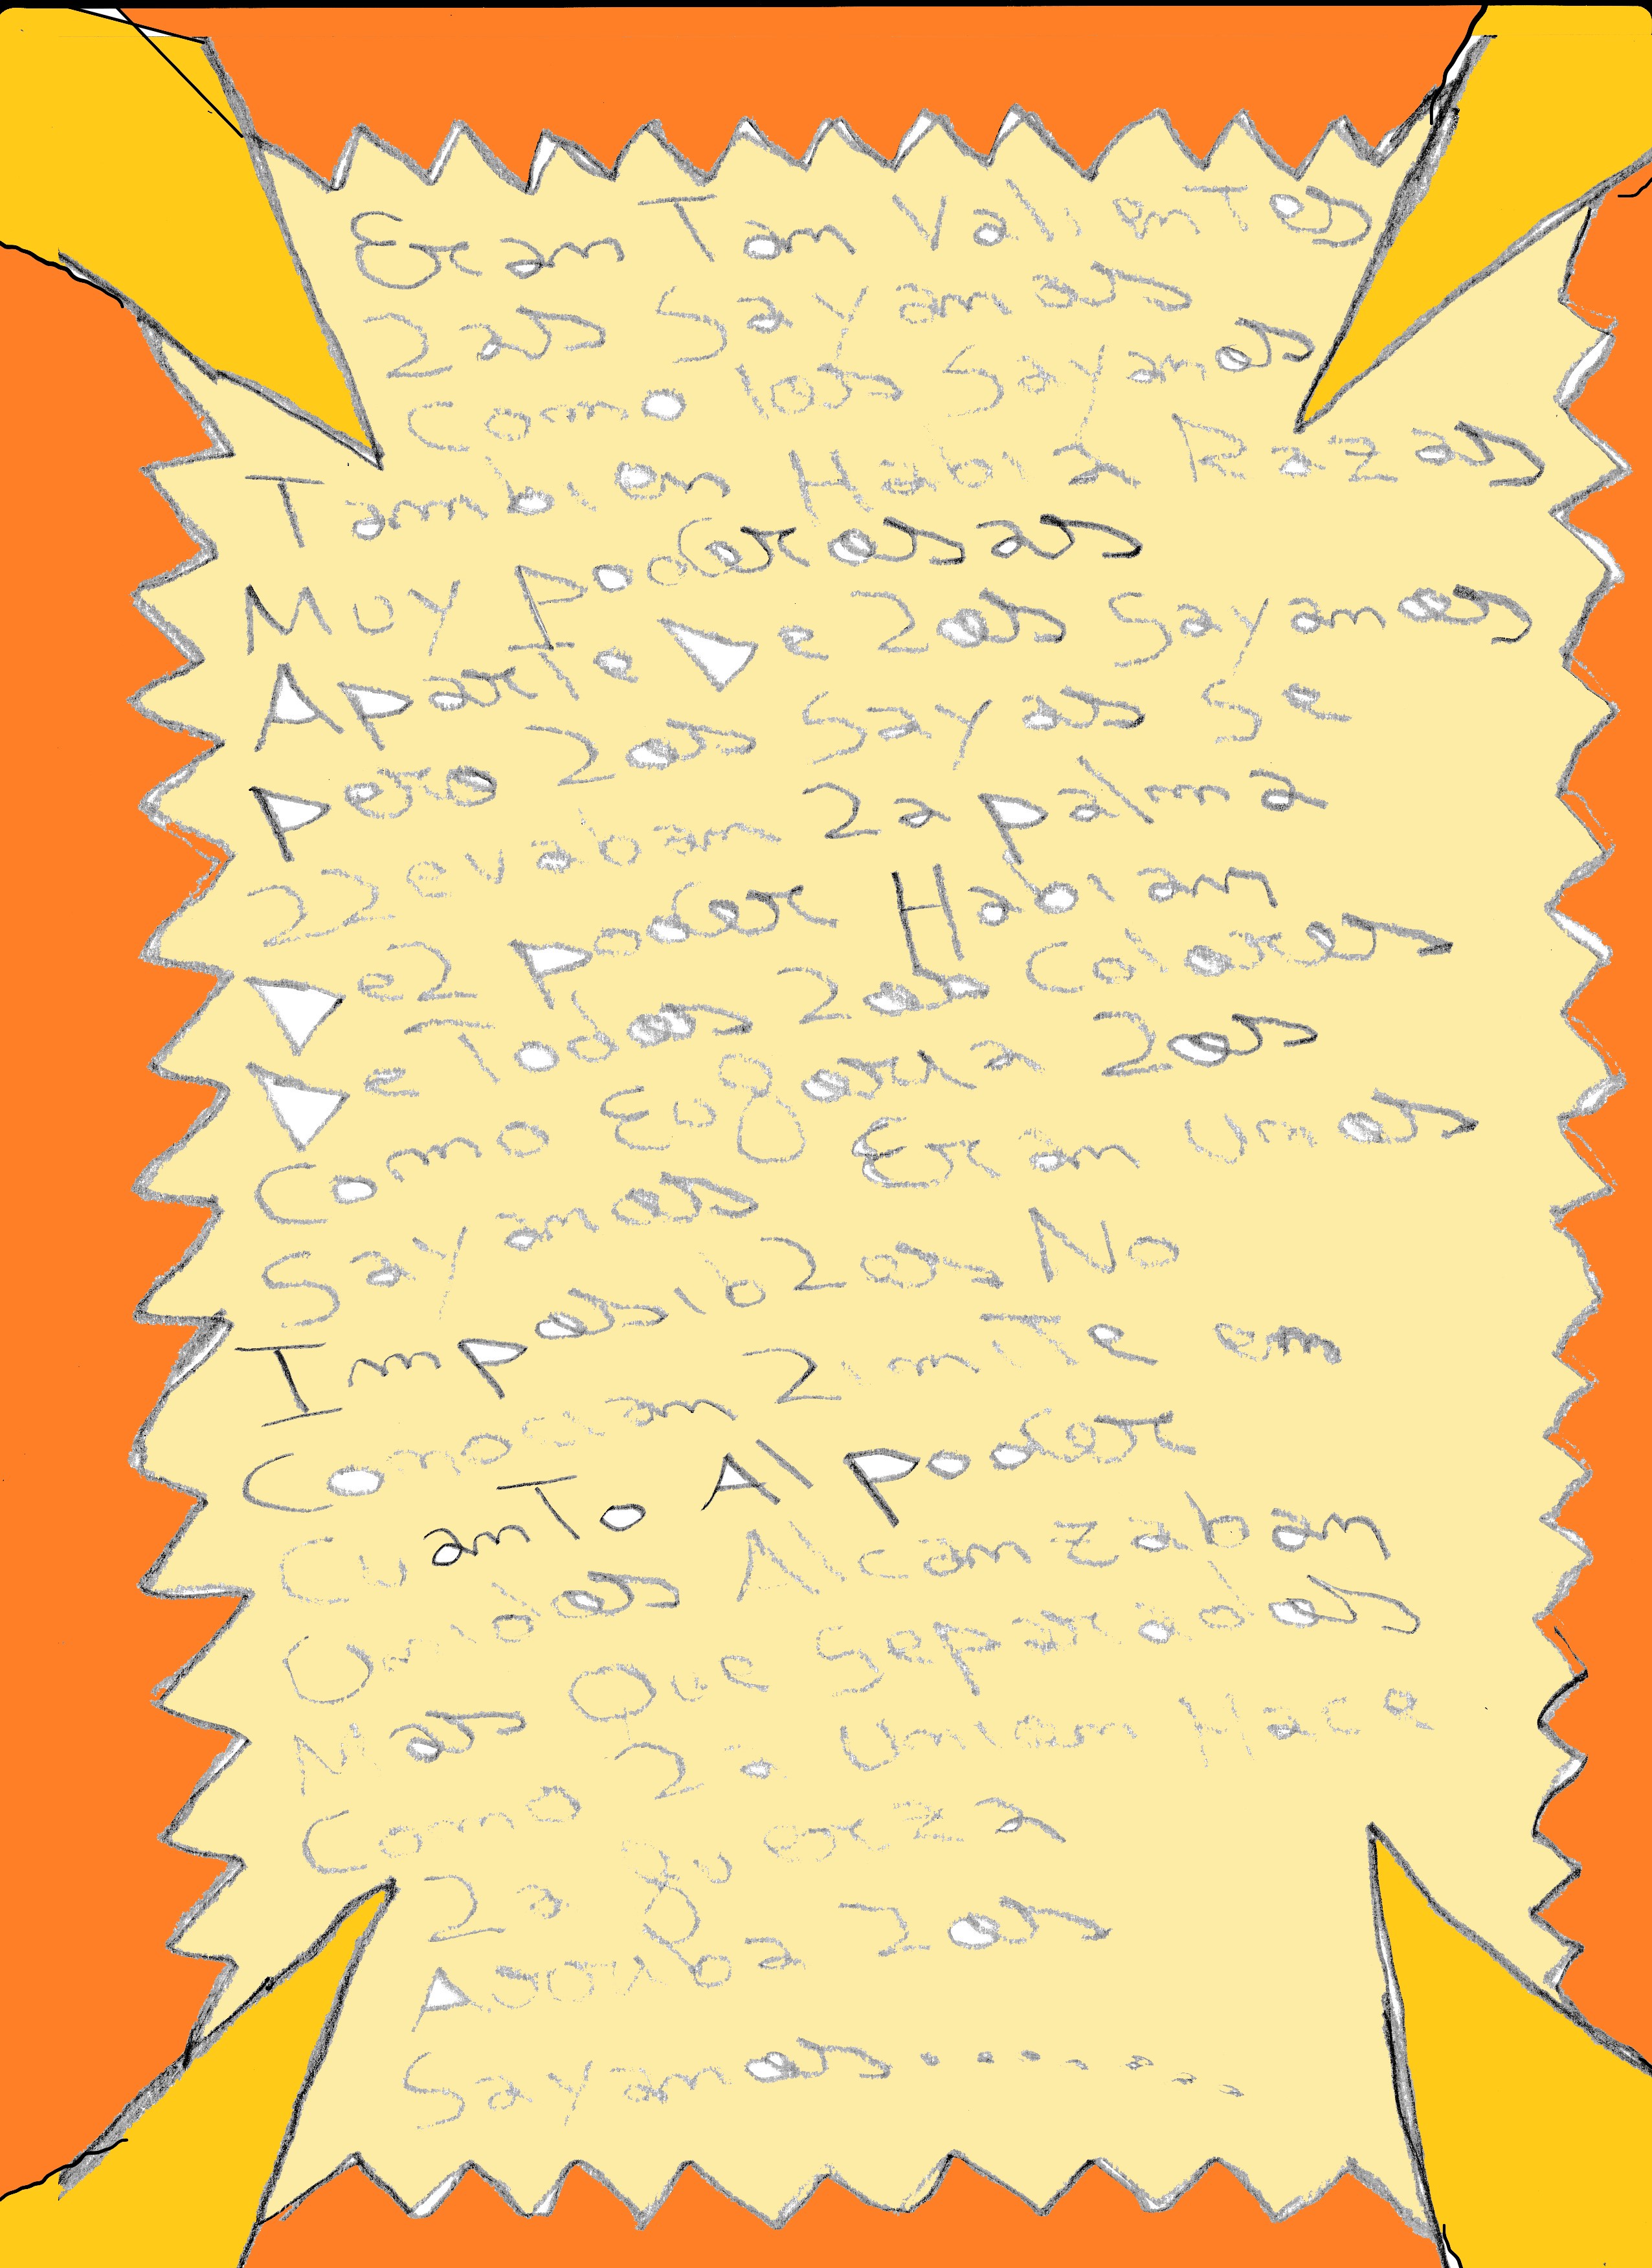 Eran Tan Valientes
Las Sayanas
Como los Sayanos
Tambien Habia Razas
Muy poderosas
Aparte De Los Sayanos
Pero Los Sayas Se
Llevaban La palma
Del poder Habian
De Todos Los Colores
Como Euforia Los
Sayanos Eran Unos
Imposiblos No
Conocian Limite en
Cuanto Al poder
Unidos Alcanzaban
Mas Que Separados
Como La Union Hace
La fuerza
Arriba Los
Sayanos........